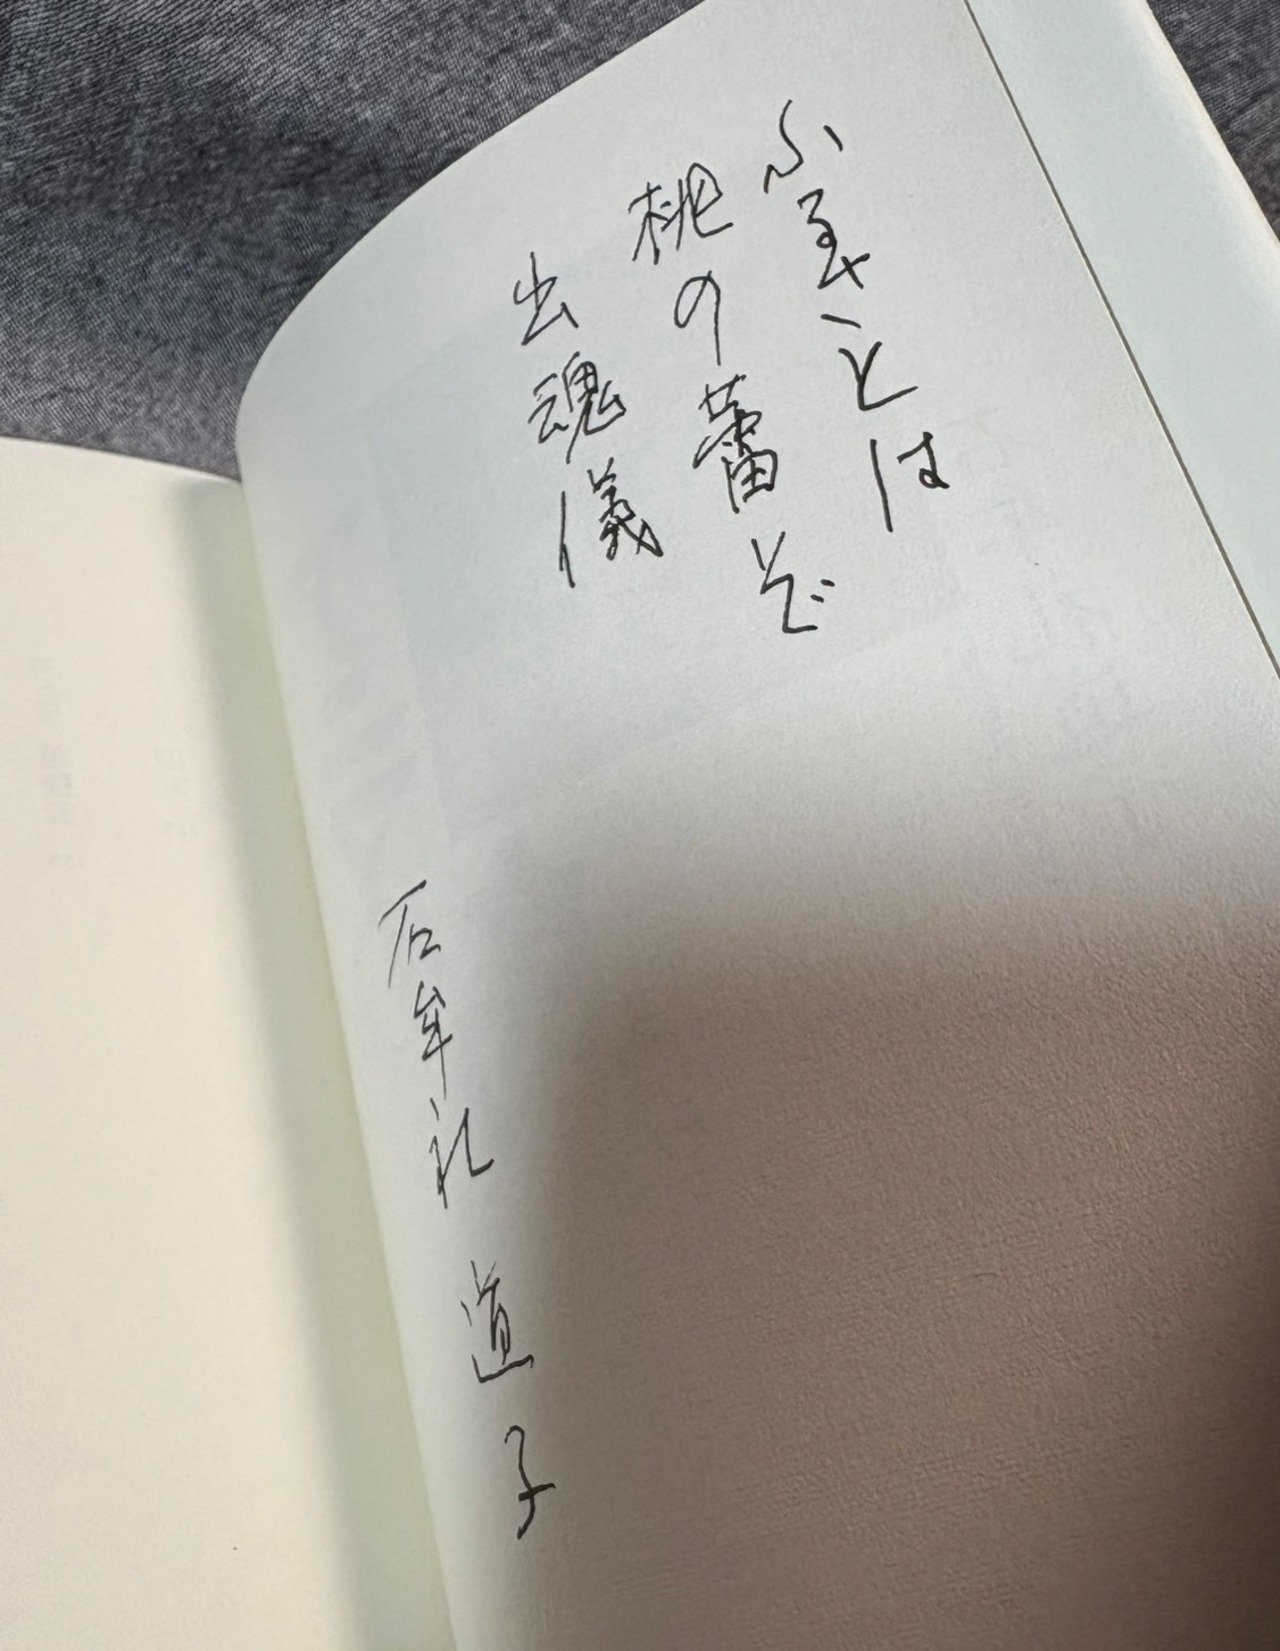 ふるさとは
桃の蕾ぞ
出魂儀
石牟礼道子